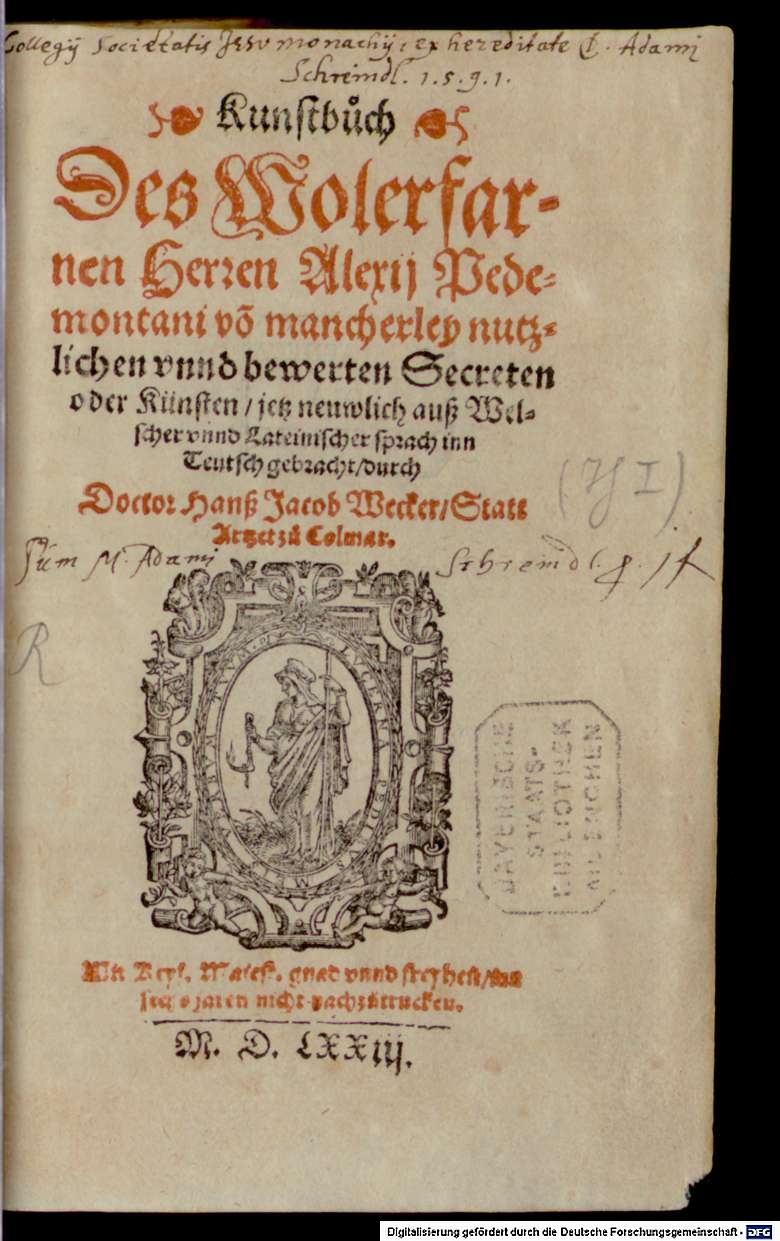 Collegij Societatis Jesu monachij, ex hereditate D. Adami
Schreindl. 1.5.9.1.
Kunstbůch
Des Wolerfar-
nen Herren Alexij Pede-
montani võ mancherley nutz-
lichen vnnd bewerten Secreten
oder Künsten / jetz neuwlich auß Wel-
scher vnnd Lateinischer sprach inn
Teutsch gebracht / durch
Doctor Hanß Jacob Wecker / Statt
Artzet zů Colmar.
(Y I)
Sum M. Adami Schreindl.
R
BAYERISCHE
STAATS-
BIBLIOTHEK
MUENCHEN
Mit Keys. Maiest. gnad vnnd freyheit / inn
sechs jaren nicht nachzůtrucken.
M. D. LXXIIj.
Digitalisierung gefördert durch die Deutsche Forschungsgemeinschaft - DFG